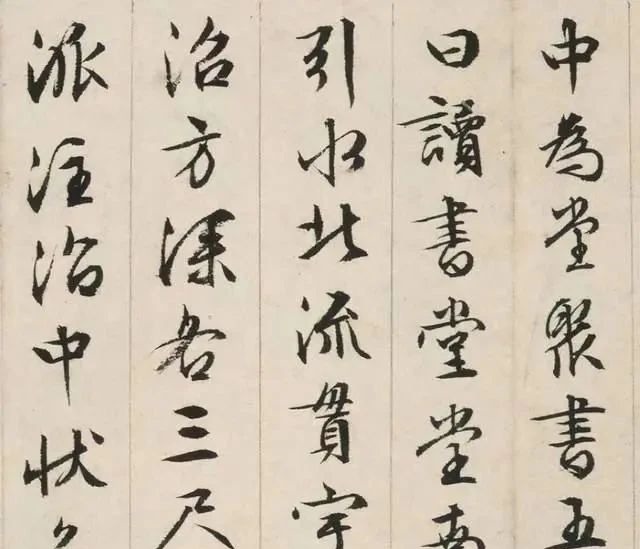 中為堂聚書五
曰讀書堂堂南
引水北流貫宇
沼方深各三尺
派注沼中狀